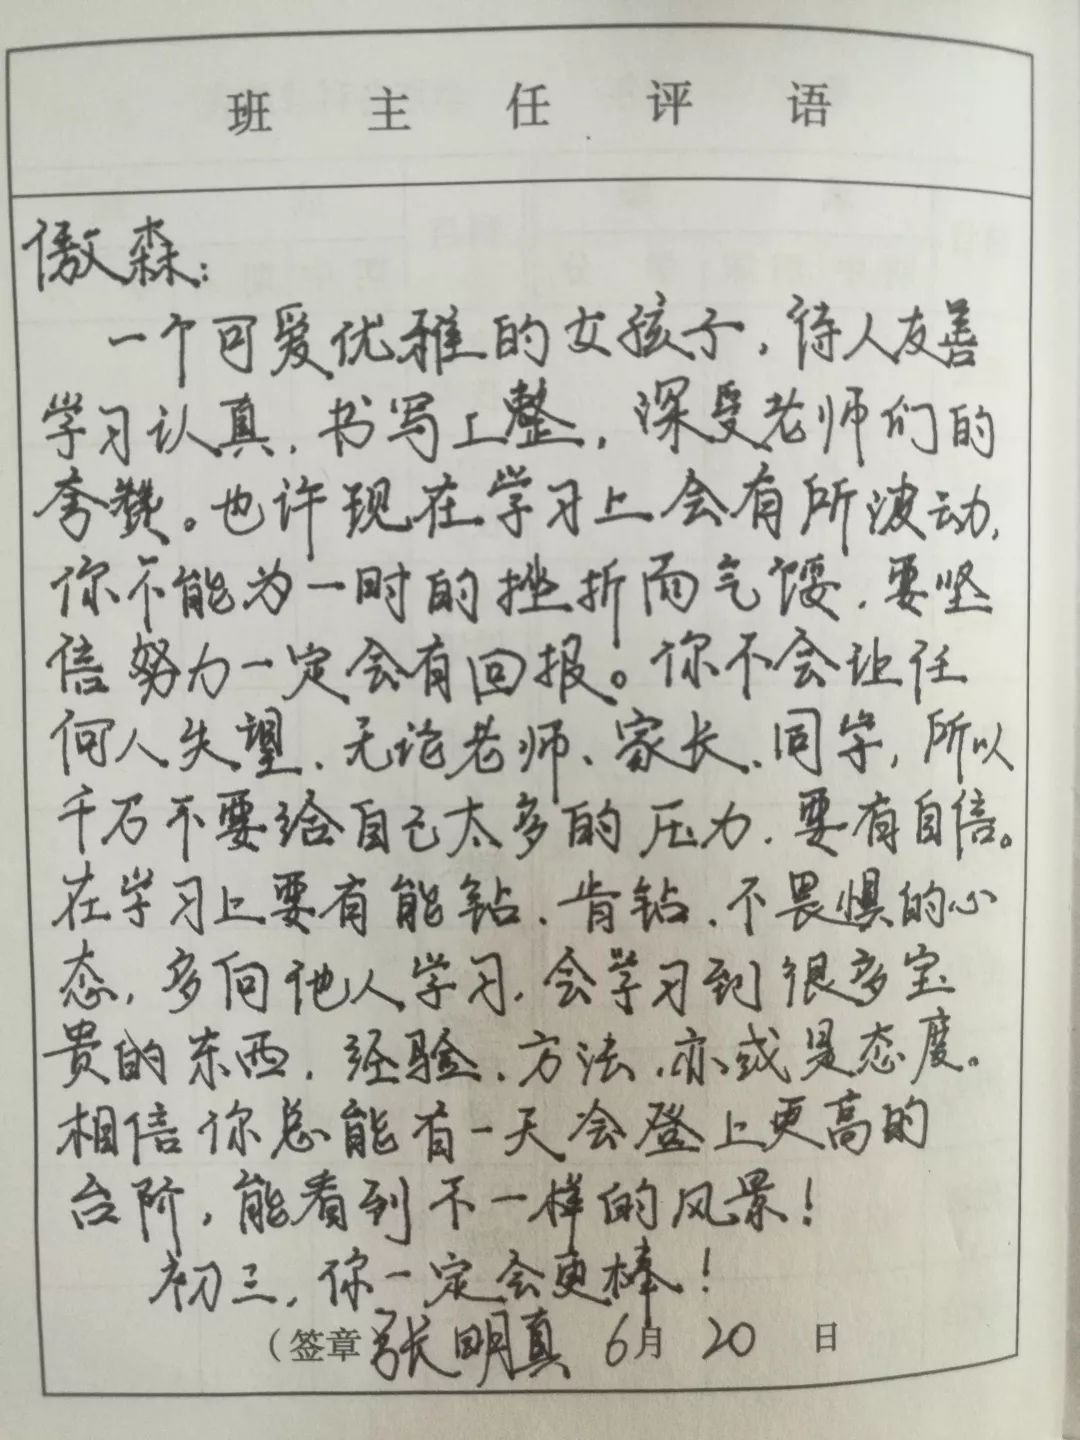 班主任评语
傲森：
一个可爱优雅的女孩子，待人友善
学习认真，书写工整，深受老师们的
夸赞。也许现在学习上会有所波动，
你不能为一时的挫折而气馁，要坚
信努力一定会有回报。你不会让任
何人失望、无论老师、家长、同学，所以
千万不要给自己太多的压力，要有自信。
在学习上要有能钻、肯钻、不畏惧的心
态，多向他人学习，会学习到很多宝
贵的东西，经验、方法、亦或是态度。
相信你总能有一天会登上更高的
台阶，能看到不一样的风景！
初三，你一定会更棒！
（签章 张明真 6月 20 日